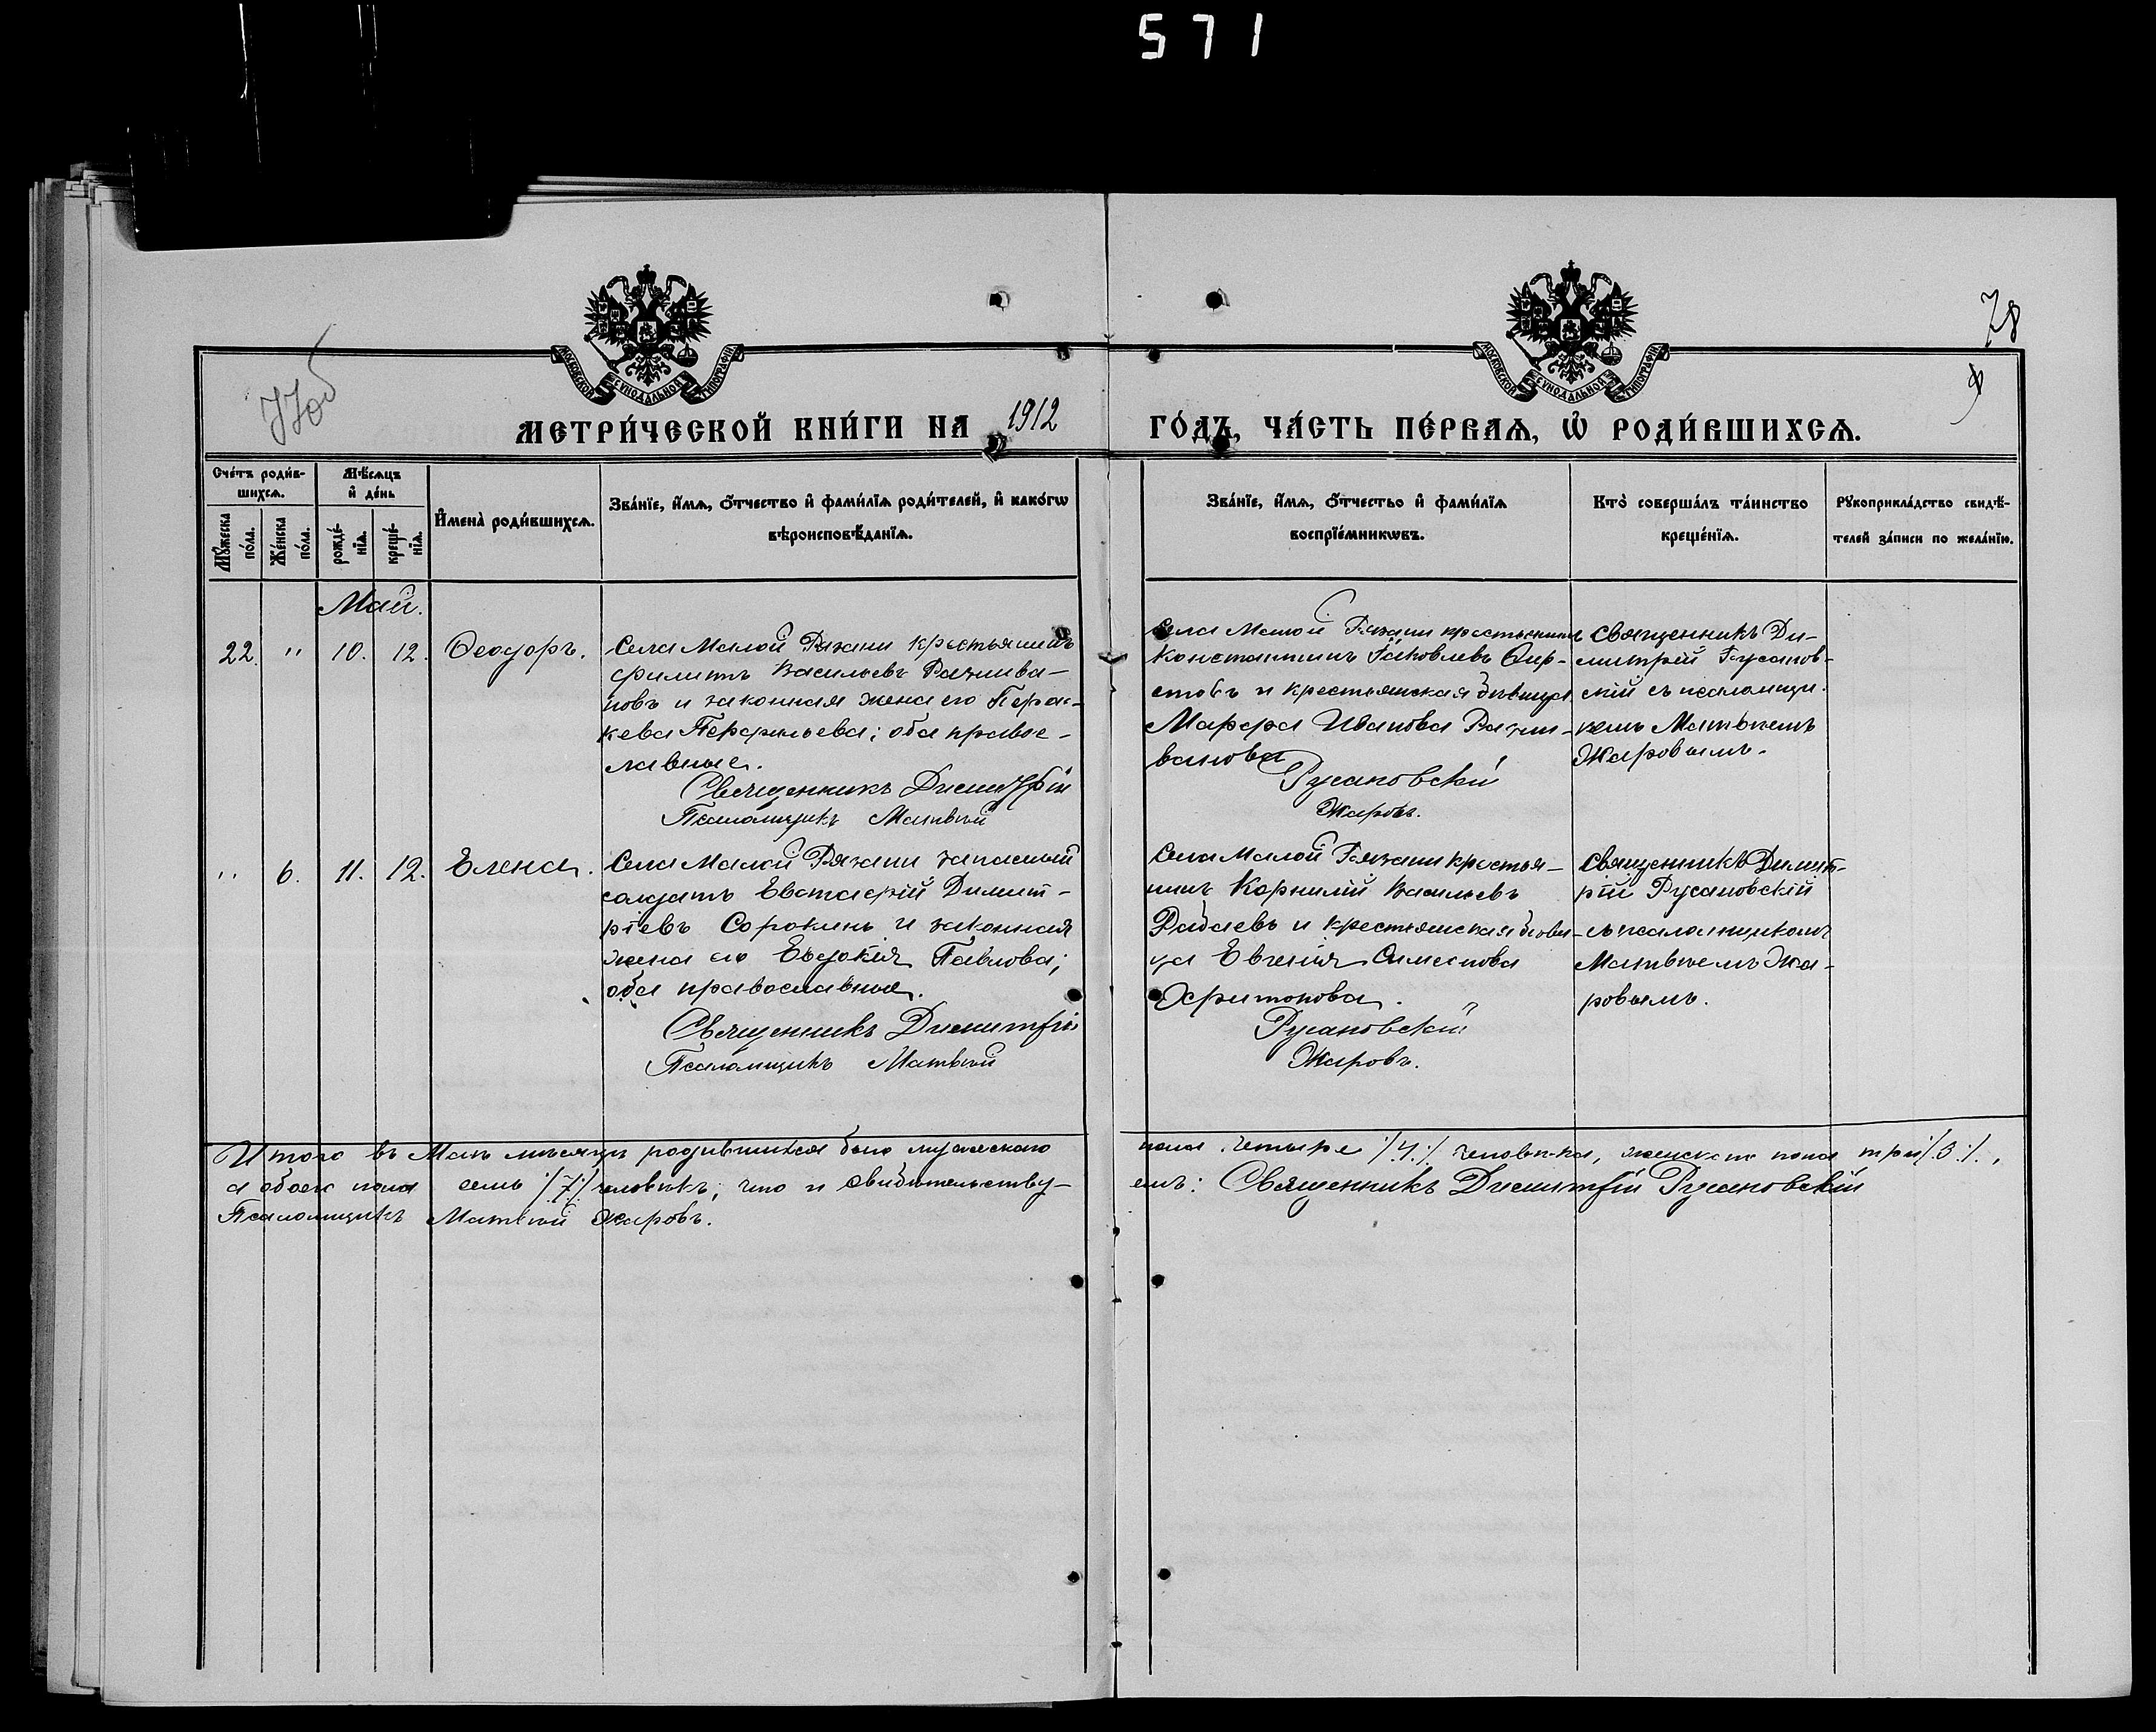 571
78
77об
МОСКОВСКОЙ СѴНОДАЛЬНОЙ ТИПОГРАФІИ
МОСКОВСКОЙ СѴНОДАЛЬНОЙ ТИПОГРАФІИ
МЕТРИ́ЧЕСКОЙ КНИ́ГИ НА 1912 ГО́ДЪ, ЧА́СТЬ ПЕ́РВАѦ, Ѡ҆ РОДИ́ВШИХСѦ.
Сче́тъ роди́в-
шихсѧ.
Мꙋ́жеска
по́ла.
Же́нска
по́ла.
Мѣ́сѧцъ
и҆ де́нь
рожде́-
нїѧ.
креще́-
нїѧ.
И҆мена̀ роди́вшихсѧ.
Зва́нїе, и҆́мѧ, ѻ҆́тчество и҆ фами́лїѧ роди́телей, и҆ како́гѡ
вѣроисповѣ́данїѧ.
Зва́нїе, и҆́мѧ, ѻ҆́тчество и҆ фами́лїѧ
воспрїе́мникѡвъ.
Кто̀ соверша́лъ та́инство
креще́нїѧ.
Рꙋкоприкла́дство свидѣ́-
телей за́писи по жела́нїю.
Май.
22. " 10. 12. Ѳеодоръ.
Села Малой Рязани крестьянинъ
Филиппъ Васильевъ Разлива-
новъ и законная жена его Парас-
кева Перфильева; оба правос-
лавные.
Священникъ Димитрій
Псаломщикъ Матвѣй
Села Малой Рязани крестьянинъ
Константинъ Іаковлевъ
и крестьянская дѣвица
Марфа Иванова Разли-
ванова
Русановскій
Жаровъ.
Священникъ Ди-
митрій Русанов-
скій съ псаломщи-
комъ Матвѣемъ
Жаровымъ.
" 6. 11. 12. Елена.
Села Малой Рязани запасный
солдатъ Евстафій Димит-
ріевъ Сорокинъ и законная
жена его Евдокія Павлова;
оба православные.
Священникъ Димитрій
Псаломщикъ Матвѣй
Села Малой Рязани крестья-
нинъ Корнилій Васильевъ
и крестьянская дѣви-
ца Евгенія Симеонова
Харитонова.
Русановскій
Жаровъ.
Священникъ Димит-
рій Русановскій
съ псаломщикомъ
Матвѣемъ Жа-
ровымъ.
Итого въ Маѣ мѣсяцѣ родившихся было мужескаго пола четыре /4/ человѣка, женскаго пола три /3/,
а обоего пола семь /7/ человѣкъ; что и свидѣтельству-емъ: Священникъ Димитрій Русановскій
Псаломщикъ Матвѣй Жаровъ.